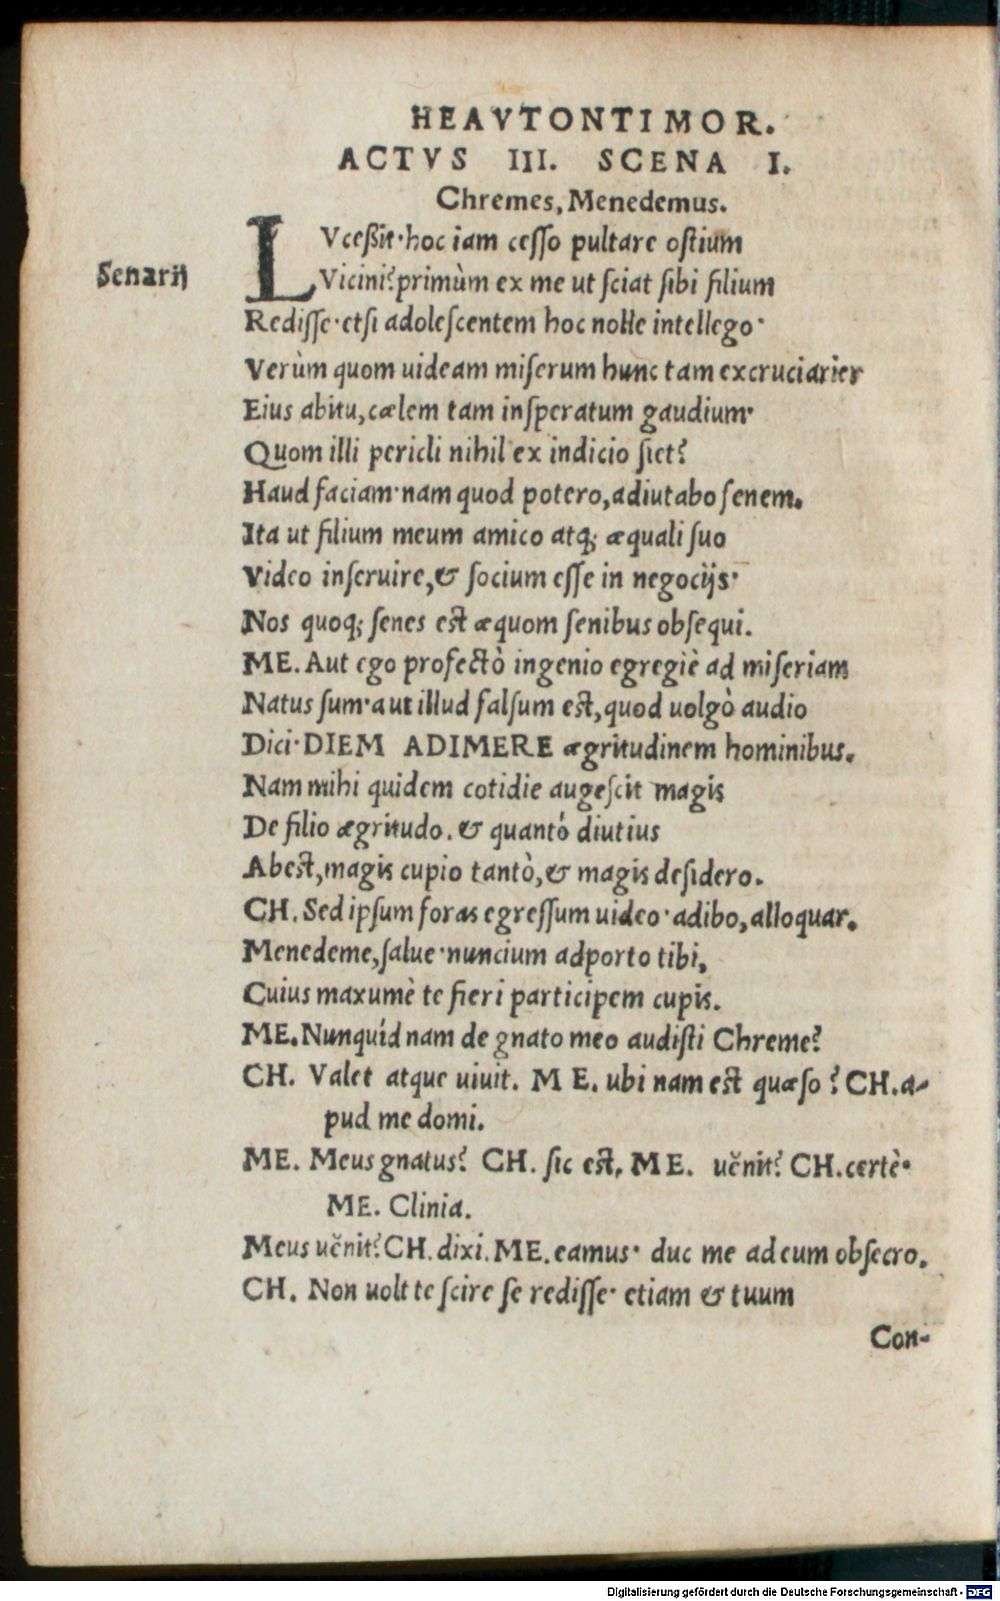 HEAVTONTIMOR.
ACTVS III. SCENA I.
Chremes, Menedemus.
Senarij
LVceßit·hoc iam ceſſo pultare oſtium
Vicini? primùm ex me ut ſciat ſibi filium
Rediſſe·etſi adoleſcentem hoc nolle intellego·
Verùm quom uideam miſerum hunc tam excruciarier
Eius abitu, cælem tam inſperatum gaudium·
Quom illi pericli nihil ex indicio ſiet?
Haud faciam·nam quod potero, adiutabo ſenem.
Ita ut filium meum amico atq; æquali ſuo
Video inſeruire, & ſocium eſſe in negocijs·
Nos quoq; ſenes est æquom ſenibus obſequi.
ME. Aut ego profectò ingenio egregiè ad miſeriam
Natus ſum·aut illud falſum eſt, quod uolgò audio
Dici·DIEM ADIMERE ægritudinem hominibus.
Nam mihi quidem cotidie augeſcit magis
De filio ægritudo. & quantò diutius
Abeſt, magis cupio tantò, & magis deſidero.
CH. Sed ipſum foras egreſſum uideo·adibo, alloquar.
Menedeme, ſalue·nuncium adporto tibi,
Cuius maxumè te fieri participem cupis.
ME. Nunquid nam de gnato meo audiſti Chreme?
CH. Valet atque uiuit. ME. ubi nam eſt quæſo? CH. a-
pud me domi.
ME. Meus gnatus? CH. ſic eſt. ME. uěnit? CH. certè·
ME. Clinia.
Meus uěnit? CH. dixi. ME. eamus· duc me ad eum obſecro.
CH. Non uolt te ſcire ſe rediſſe· etiam & tuum
Con-
Digitalisierung gefördert durch die Deutsche Forschungsgemeinschaft - DFG